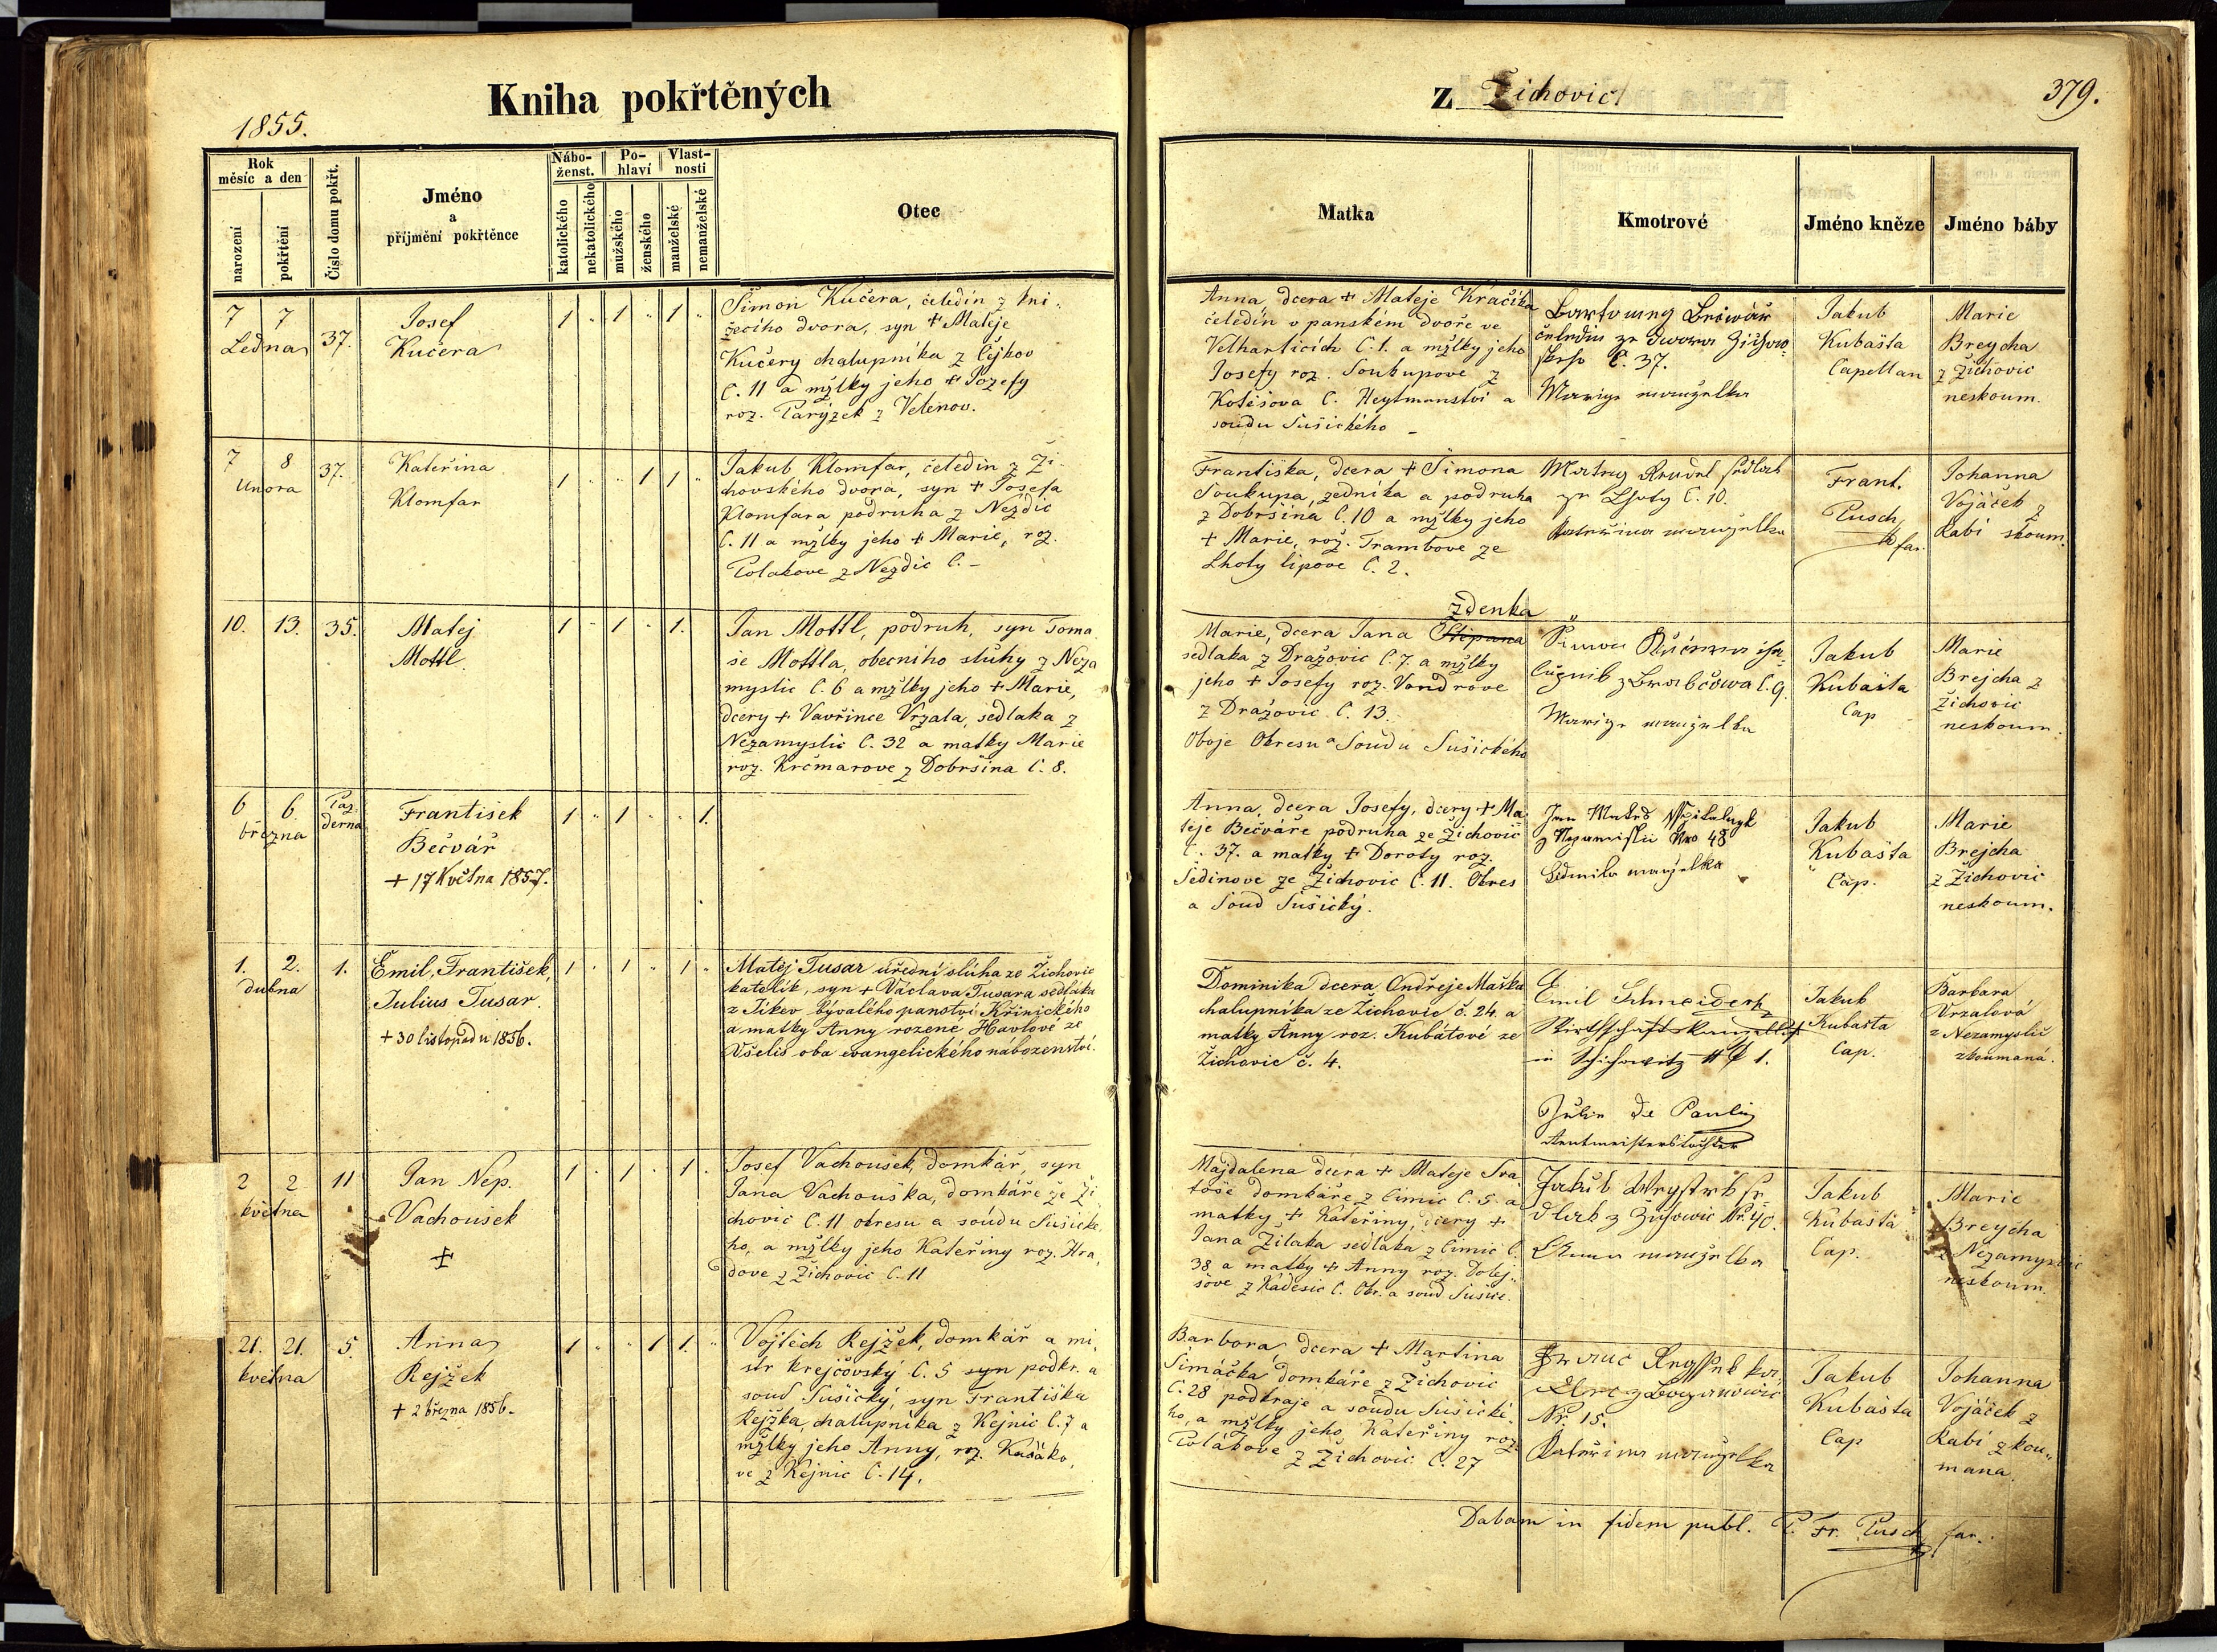 Kniha pokřtěných
1855.
Rok
měsíc a den
narození
pokřtění
Číslo domu pokřt.
Jméno
a
příjmění pokřtěnce
Nábo-
ženst.
katolického
nekatolického
Po-
hlaví
mužského
ženského
Vlast-
nosti
manželské
nemanželské
Otec
7 7
Ledna
37.
Josef
Kučera
1 " 1 " 1 "
Šimon Kučera, čeledín z kni-
žecího dvora, syn + Matěje
Kučery chalupníka z Čejkov
č. 11 a mžlky jeho + Jozefy
roz. Parýzek z Velenov.
7 8
Unora
37.
Kateřina
Klomfar
1 " " 1 1 "
Jakub Klomfar, čeledin z Ži-
chovského dvora, syn + Josefa
Klomfara podruha z Nezdic
č. 11 a mžlky jeho + Marie, roz.
Polakove z Nezdic č. –
10. 13. 35.
Matej
Mottl
1 " 1 " 1.
Jan Mottl, podruh, syn Toma
še Mottla, obecního sluhy z Neza
myslic č. 6 a mžlky jeho + Marie,
dcery + Vavřince Vrzala, sedlaka z
Nezamyslic č. 32 a matky Marie
roz. Krčmarove z Dobršína č. 8.
6 6.
března
Paz-
derna
František
Bečvář
+ 17 Května 1857.
1 " 1 " " 1.
1. 2.
dubna
1.
Emil, František,
Julius Tusar.
+ 30 listopadu 1856.
1 " 1 " 1 "
Matěj Tusar úřední sluha ze Žichovic
katolík, syn + Václava Tusara sedláka
z Jikev bývalého panství Křinického
a matky Anny rozene Havlové ze
Všeliš oba evangelického nábozenství.
2 2
května
11
Jan Nep.
Vachoušek
+
1 " 1 " 1 "
Josef Vachoušek, domkář, syn
Jana Vachouška, domkáře ze Ži
chovic č. 11 okresu a soudu Sušické
ho, a mžlky jeho Kateřiny roz. Hra
dove z Žichovic č. 11
21. 21.
května
5
Anna
Rejžek
+ 2 března 1856.
1 " " 1 1. "
Vojtěch Rejžek, domkář a mi
str krejčovský č. 5 syn podkr. a
soud Sušický, syn Františka
Rejžka, chalupníka z Kejnic č. 7 a
mžlky jeho Anny, roz.
ve z Kejnic č. 14.
z Žichovic
379.
Matka
Kmotrové
Jméno kněze
Jméno báby
Anna, dcera + Mateje Kračíka
čeledín v panském dvoře ve
Velharticích č. 1. a mžlky jeho
Josefy roz. Soukupove z
Kolešova č. Heytmanství a
soudu Sušického –
č. 37.
Jakub
Kubašta
Capellan
Marie
Breycha
z Žichovic
neskoum.
Františka, dcera + Šimona
Soukupa, zedníka a podruha
z Dobršína č. 10 a mžlky jeho
+ Marie, roz. Trambove ze
Lhoty lipove č. 2.
ze Lhoty č. 10.
Kateřina manželka
Frant.
Pusch
far.
Johanna
Vojáček z
Rabí skoum.
zdenka
Marie, dcera Jana Štipana
sedlaka z Dražovic č. 7. a mžlky
jeho + Josefy roz. Vondrove
z Dražovic č. 13.
Oboje Okresu a Soudu Sušického
Jakub
Kubašta
Cap
Marie
Brejcha z
Žichovic
neskoum.
Anna, dcera Josefy, dcery + Ma
těje Bečváře podruha ze Žichovic
č. 37. a matky + Doroty roz.
Šedinove ze Žichovic č. 11. Okres
a Soud Sušický.
Jakub
Kubašta
Cap.
Marie
Brejcha
z Žichovic
neskoum.
Dominika dcera Ondřeje Maška
chalupníka ze Zichovic č. 24. a
matky Anny roz. Kubátové ze
Žichovic č. 4.
Emil Schneider
Wirthschaftskanzellist
in Schichowitz 1.
de Paulis
Rentmeisterstochter
Jakub
Kubašta
Cap.
Barbara
Vrzalová
z Nezamyslic
zkoumaná.
Majdalena dcera + Mateje
domkáře z Čimic č. 5. a
matky + Kateřiny, dcery +
Jana Žilaka sedlaka z Čimic č.
38 a matky + Anny roz. Dolej-
šove z Kadešic č. Okr. a soud Sušice.
Jakub
Anna manželka
Jakub
Kubašta
Cap.
Marie
Breycha
z Nezamyslic
neskoum.
Barbora, dcera + Martina
Šimáčka domkáře z Žichovic
č. 28 podkraje a soudu Sušické
ho, a mžlky jeho Kateřiny roz.
Polákove z Žichovic č. 27
Nr. 15.
Kateřina manželka
Jakub
Kubašta
Cap
Johanna
Vojáček z
Rabí zkou-
mana.
Dabam in fidem publ. P. Fr. Pusch, far.